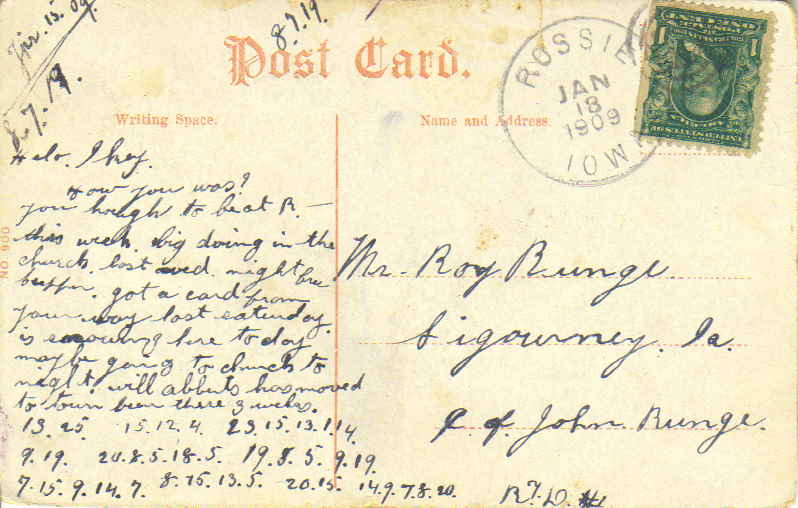 Jir. 15. 09.
8.7.19.
8.7.19
Post Card.
Writing Space.
Name and Address.
ROSSIE
JAN
18
1909
IOWA
1
NO 900
Helo. Ikey.
How you was?
you hough to be at R. —
this week. big doing in the
church. last wed. night
supper. got a card from
your way last saturday.
is snowing here to day
maybe going to church to
night. will abbuts has moved
to town been there 3 weeks.
13.25. 15.12.4. 23.15.13.1.14
9.19. 20.8.5.18.5. 19.8.5. 9.19.
7.15.9.14.7. 8.15.13.5. 20.15. 14.9.7.8.20.
Mr. Roy Runge.
Sigourney. Ia.
c. of. John. Runge.
R.F.D. #1